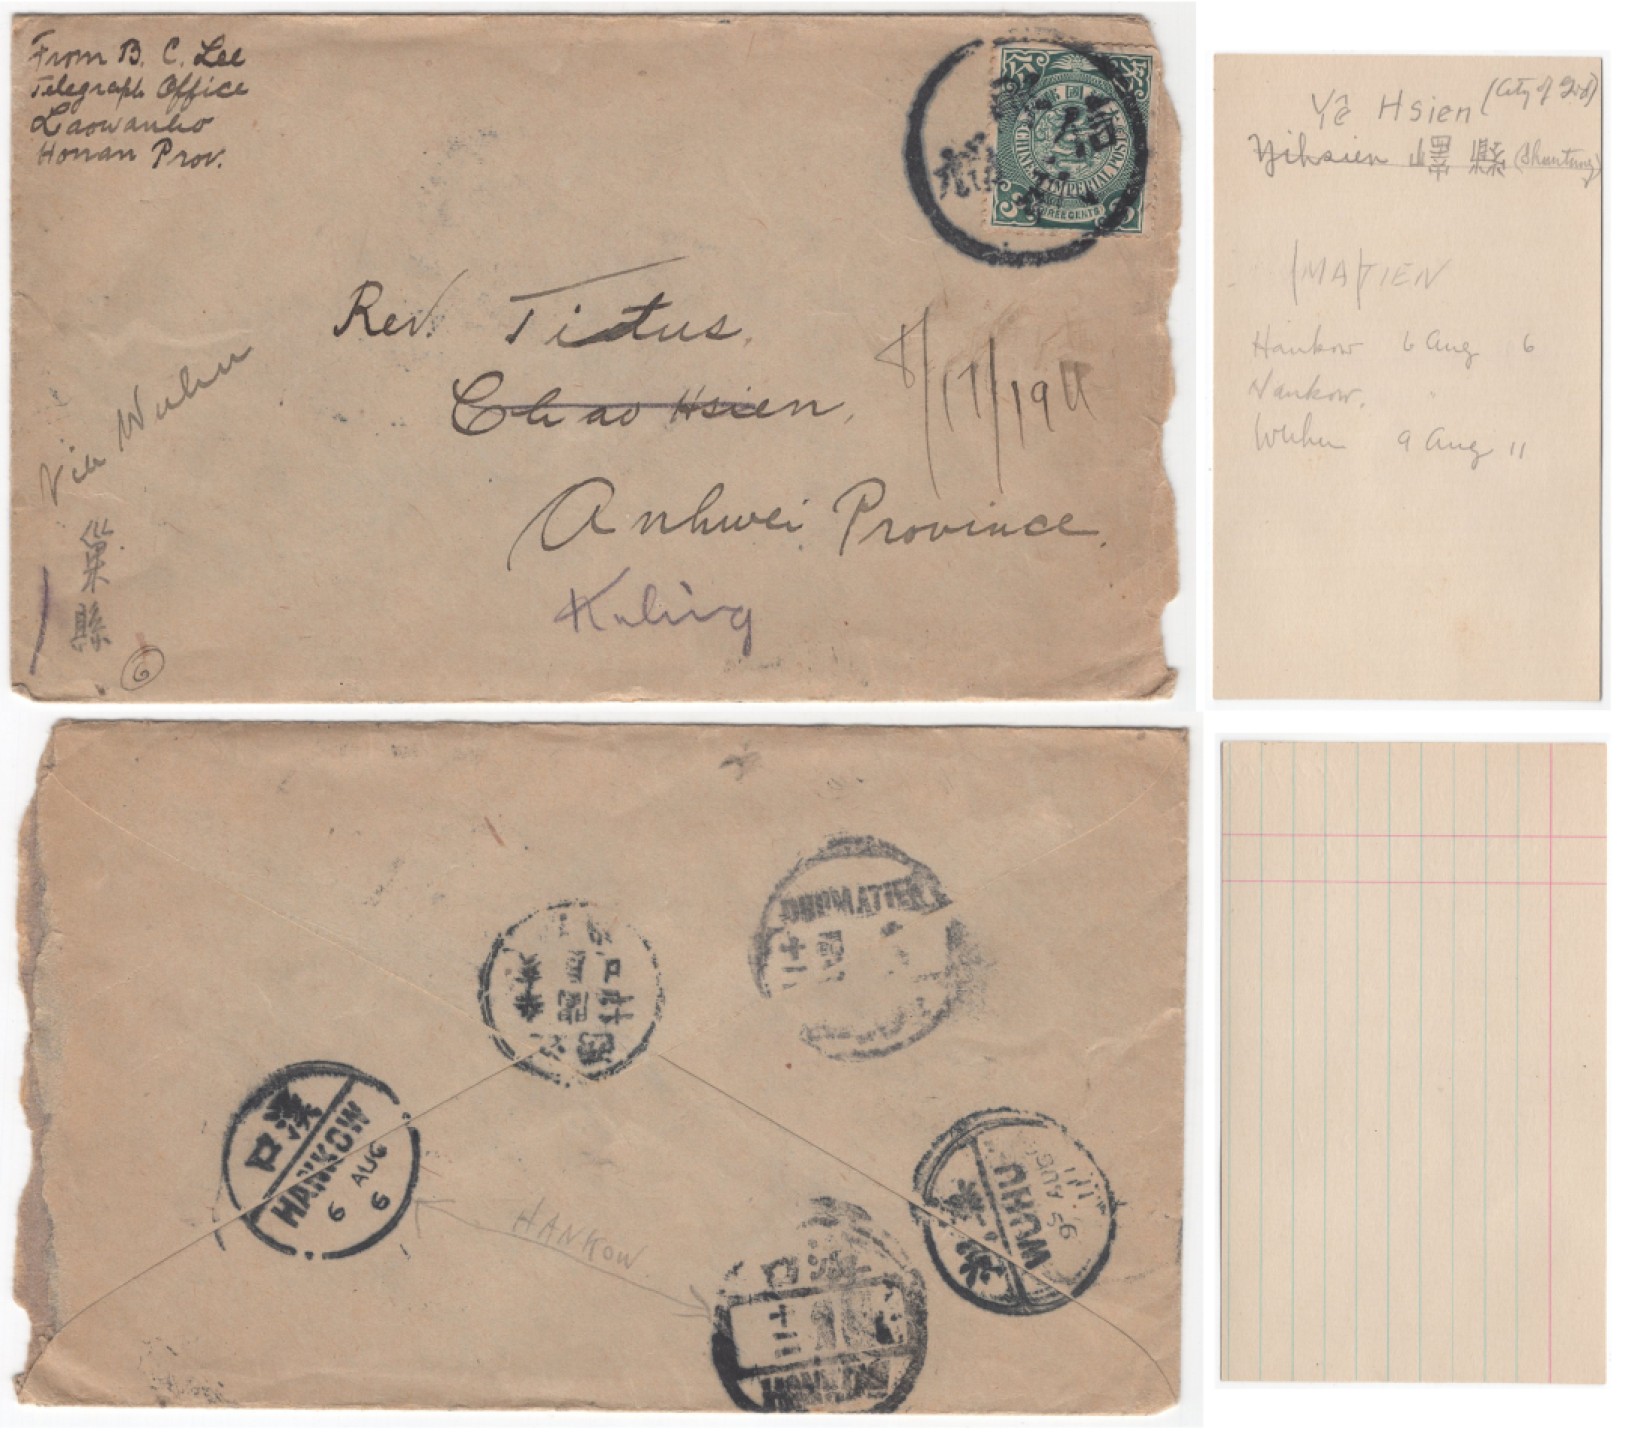 From B. C. Lee
Telegraph Office
Laowanho
Honan Prov.
CHINESE IMPERIAL POST
THREE CENTS
Rev. Titus.
Chao Hsien,
8/17/1911
Anhwei Province.
Kuling
Via Wuhu
巢縣
6
Yê Hsien (City of 2nd)
Yihsien 嶧縣 (Shantung)
(MA)TIEN
Hankow 6 Aug 6
Hankow.
Wuhu 9 Aug 11
漢口
HANKOW
6 AUG
6
HANKOW
漢口
十二
HANKOW
WUHU
AUG